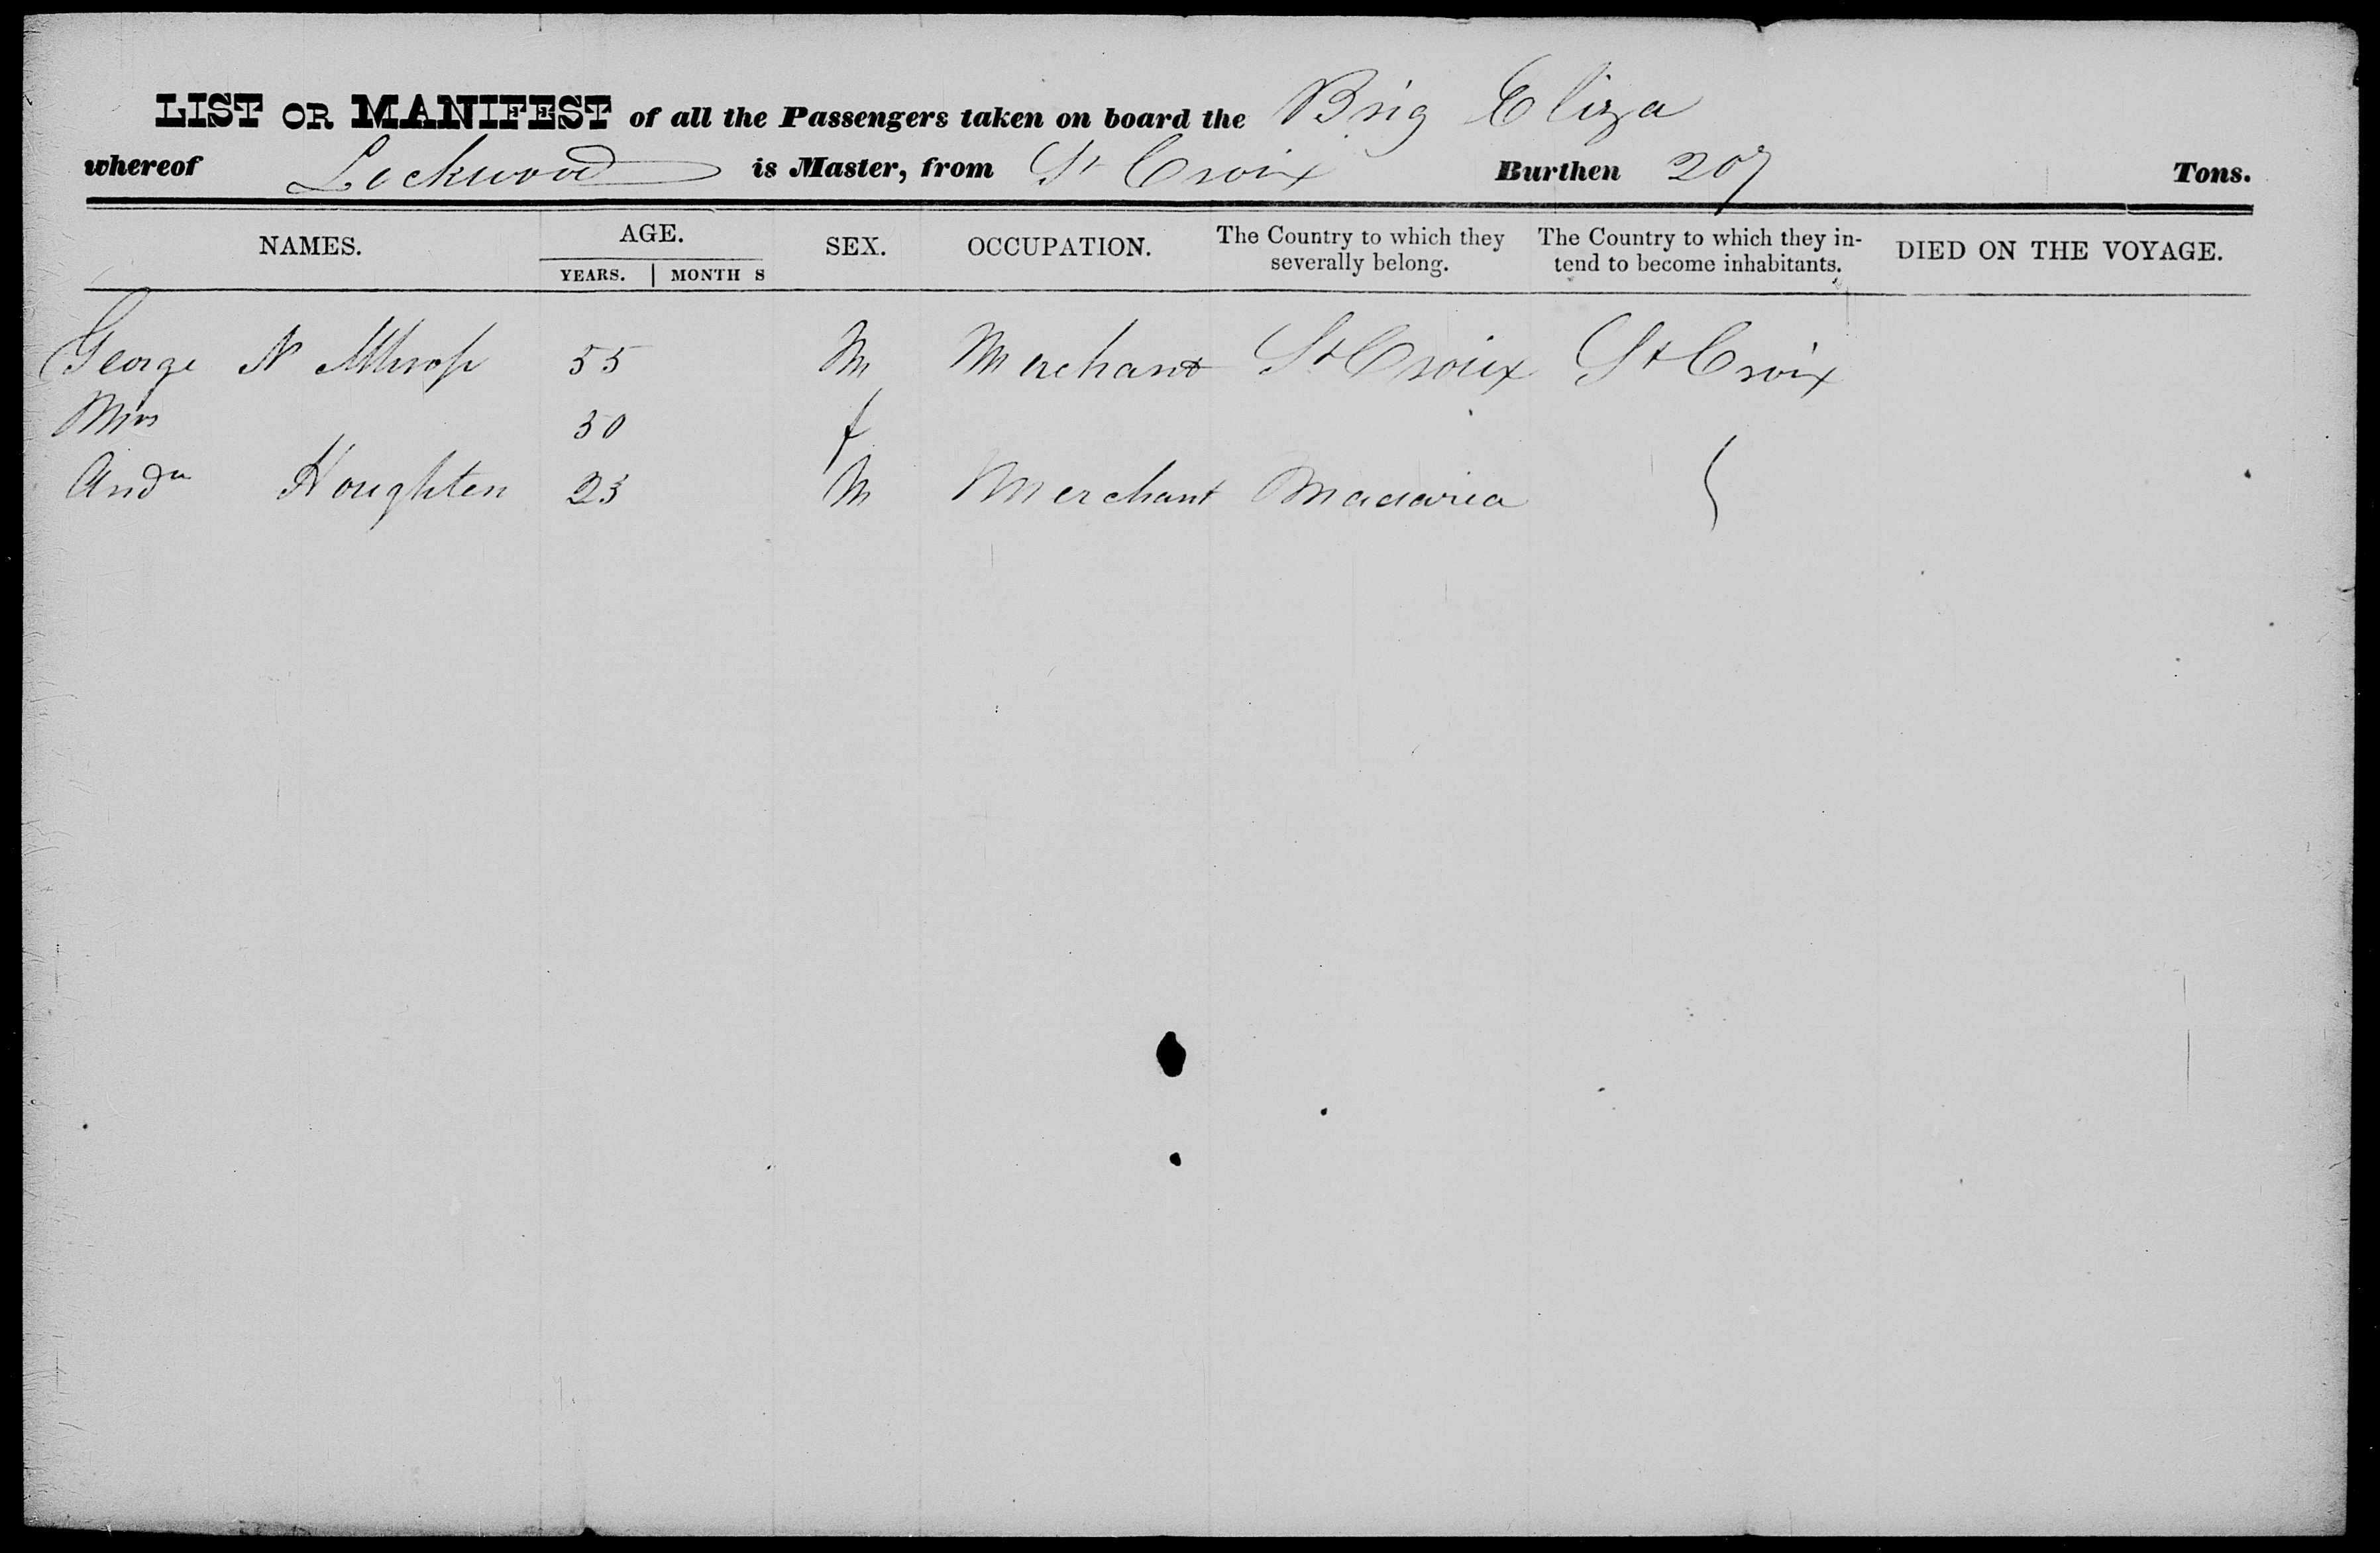 LIST OR MANIFEST of all the Passengers taken on board the Brig Eliza
whereof Lockwood is Master, from St Croix Burthen 207 Tons.
NAMES. AGE. SEX. OCCUPATION. The Country to which they severally belong. The Country to which they intend to become inhabitants. DIED ON THE VOYAGE.
YEARS. MONTHS
George N 55 M Merchant St Croix St Croix
Mrs 50 f
Houghten 23 M Merchant